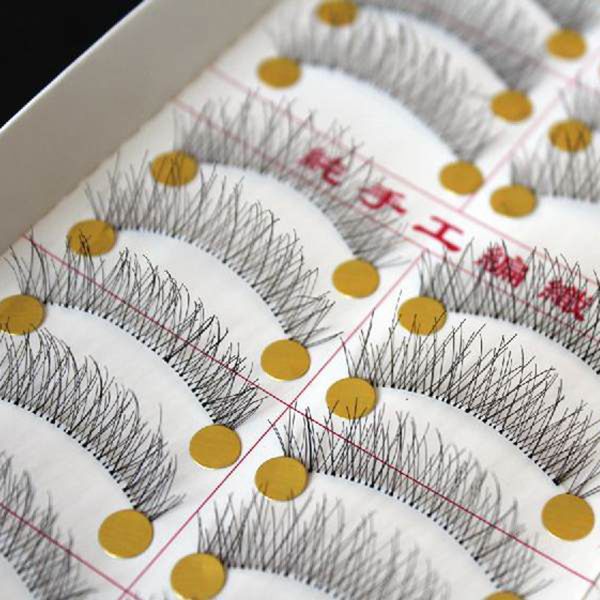 純手工編織